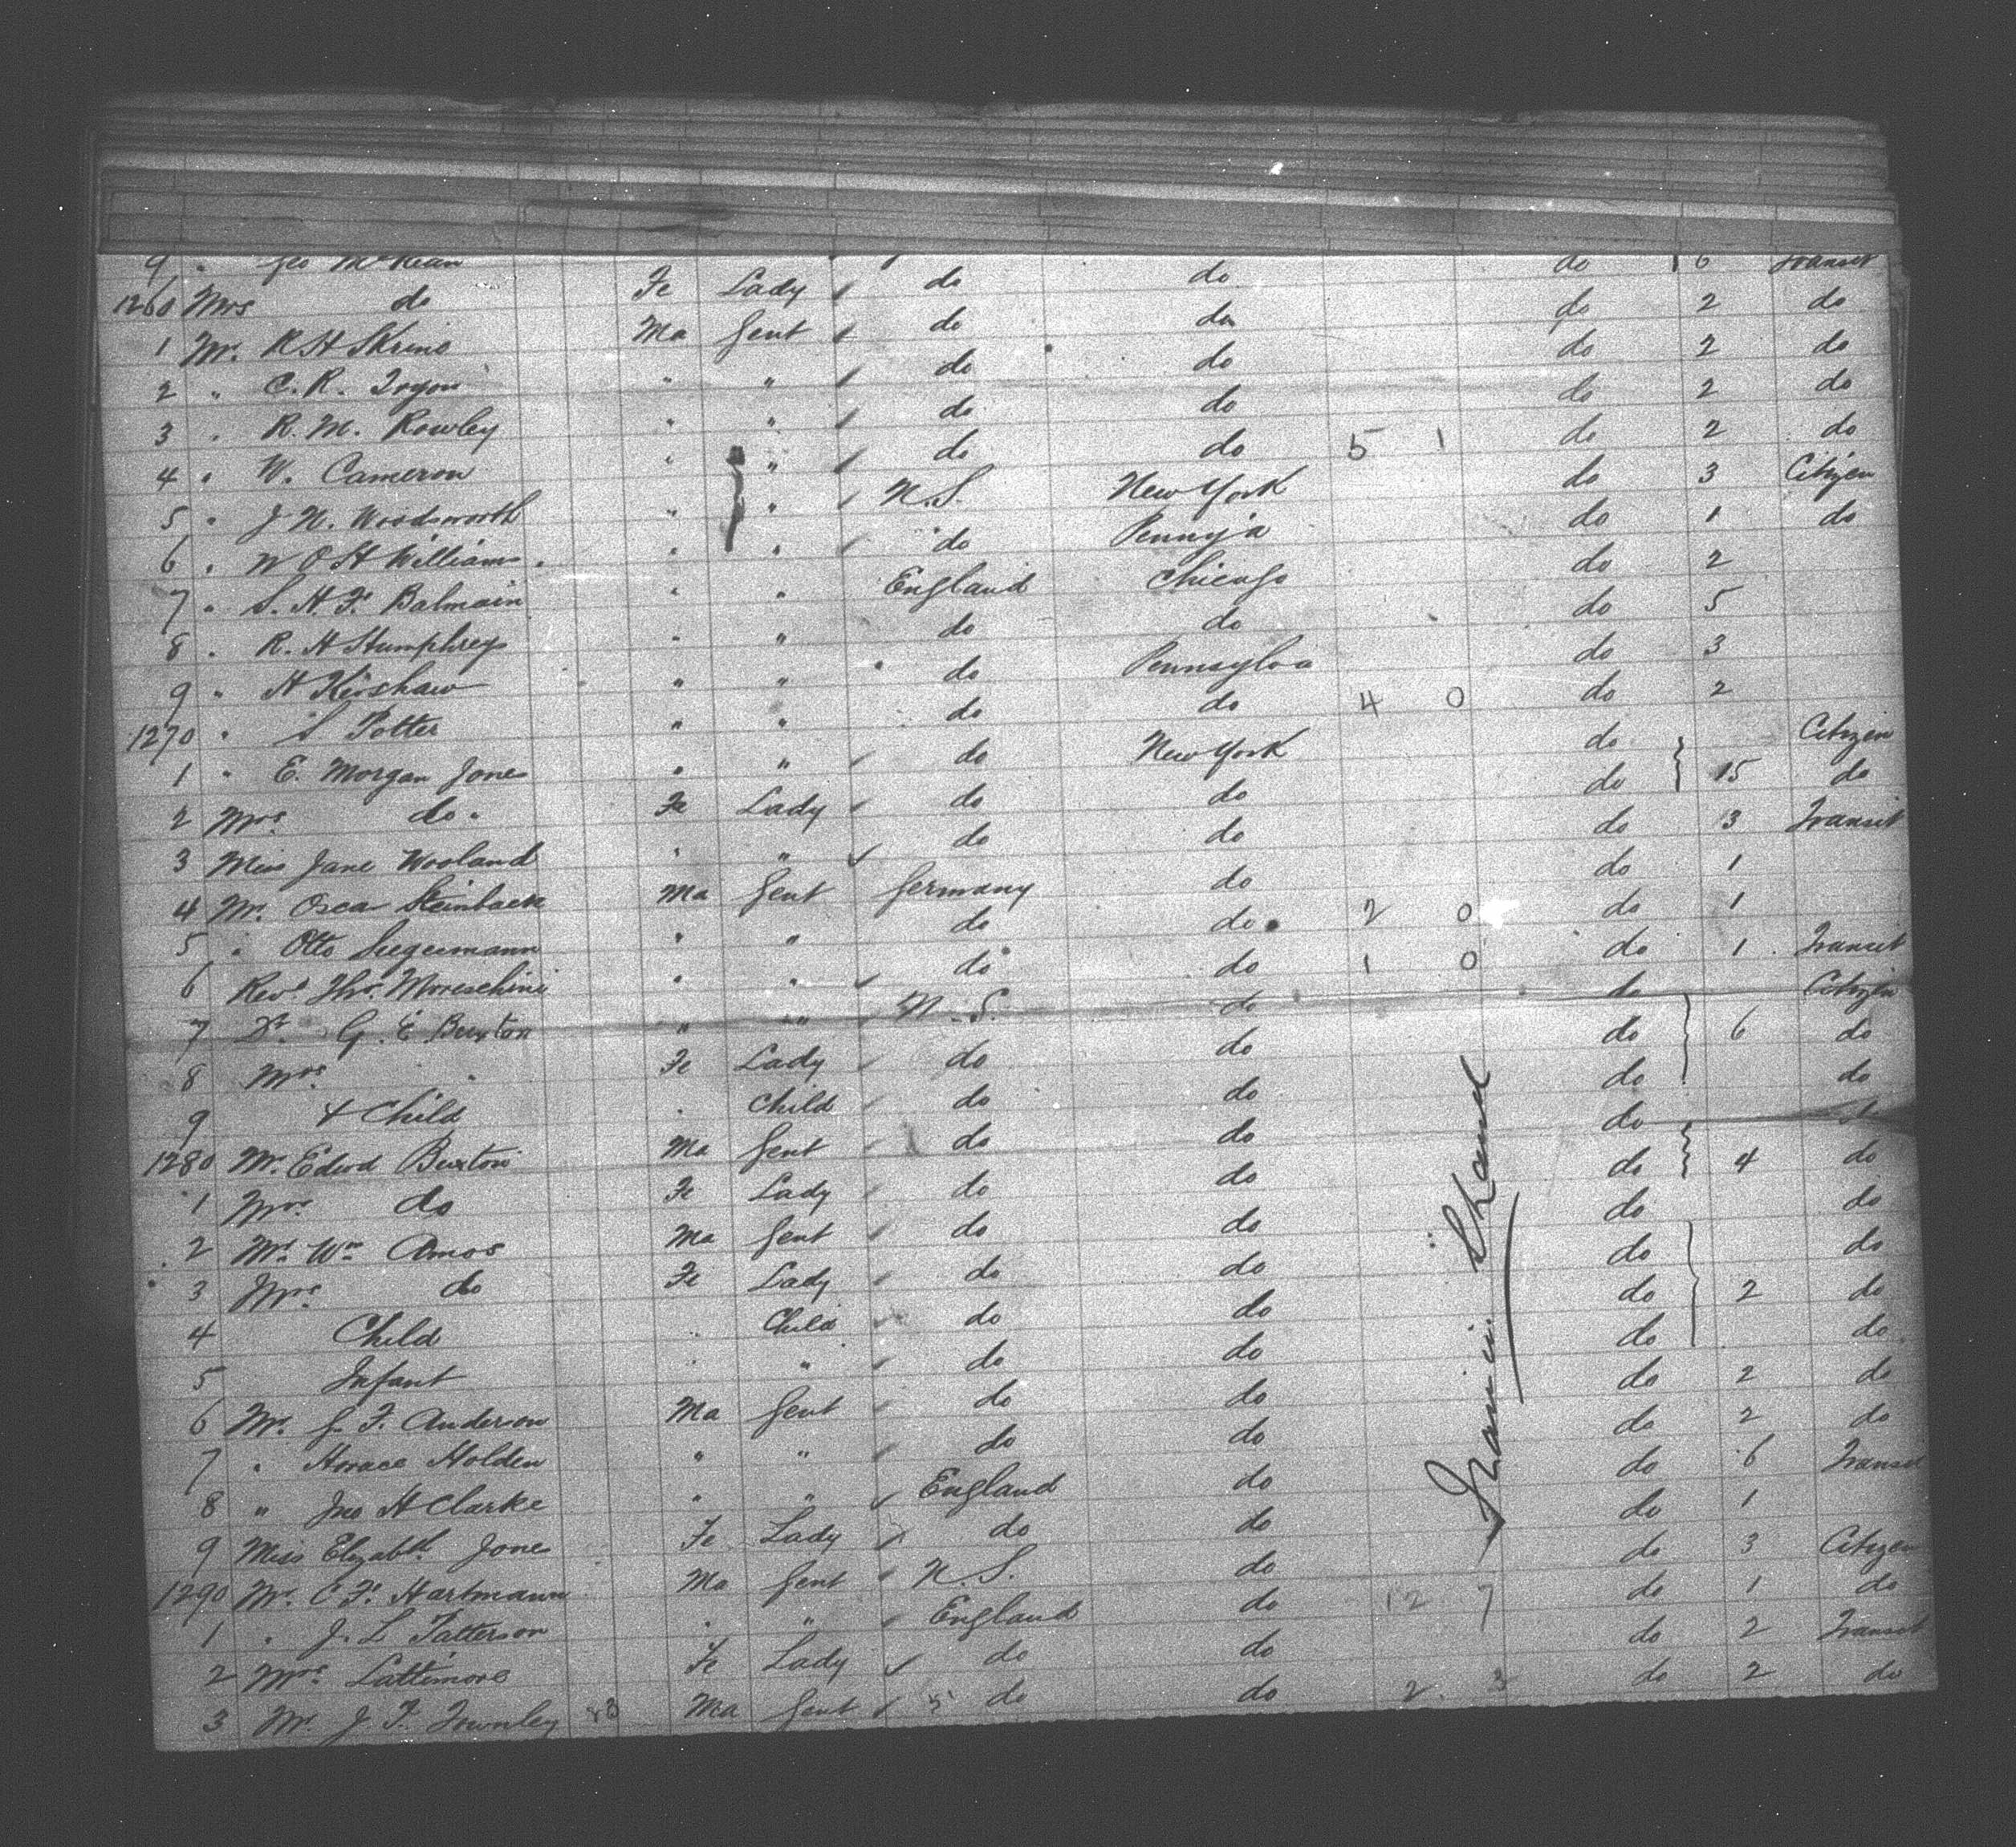 9 " Geo McKean do 6 Transit
1260 Mrs do Fe Lady do do do 2 do
1 Mr. R H Skrine Ma Gent do do do 2 do
2 " C. R. Tryon " " do do do 2 do
3 " R. M. Rowley " " do do do 2 do
4 " W. Cameron " " do do 5 1 do 3 Citizen
5 " J. N. Woodsworth " " U.S. New York do 1 do
6 " W O H Williams " " do Pennyia do 2
7 " S. H. F. Balmain " " England Chicago do 5
8 " R. H Humphreys " " do do do 3
9 " H Kershaw " " do Pennsylva do 2
1270 " S Potter " " do do 4 0 do
1 " E. Morgan Jones " " do New York do Citizen
2 Mrs do Fe Lady do do do 15 do
3 Miss Jane Wooland " " do do do 3 Transit
4 Mr. Oscar Steinback Ma Gent Germany do do 1
5 " Otto " " do do 2 0 do 1
6 Revd Thos. Moreschini " " do do 1 0 do 1 Transit
7 Dr. G. E Buxton " " U.S. do do Citizen
8 Mrs " Fe Lady do do do 6 do
9 & Child " Child do do do do
1280 Mr. Edwd Buxton Ma Gent do do do do
1 Mrs do Fe Lady do do do 4 do
2 Mr. Wm Amos Ma Gent do do do do
3 Mrs do Fe Lady do do do do
4 Child " Child do do do 2 do
5 Infant " " do do do do
6 Mr. G. F. Anderson Ma Gent do do do 2 do
7 " Horace Holden " " do do do 2 do
8 " Jno H Clarke " " England do do 6 Transit
9 Miss Elizabth Jones Fe Lady do do do 1
1290 Mr. C. F. Hartmann Ma Gent U.S. do do 3 Citizen
1 " J. L Patterson " " England do 12 7 do 1 do
2 Mrs Lattimore Fe Lady do do do 2 Transit
3 Mr. J. F. Townley Ma Gent do do 2 3 do 2 do